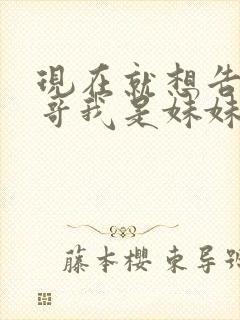 現在就想告
哥我是妹妹
藤本櫻 東导